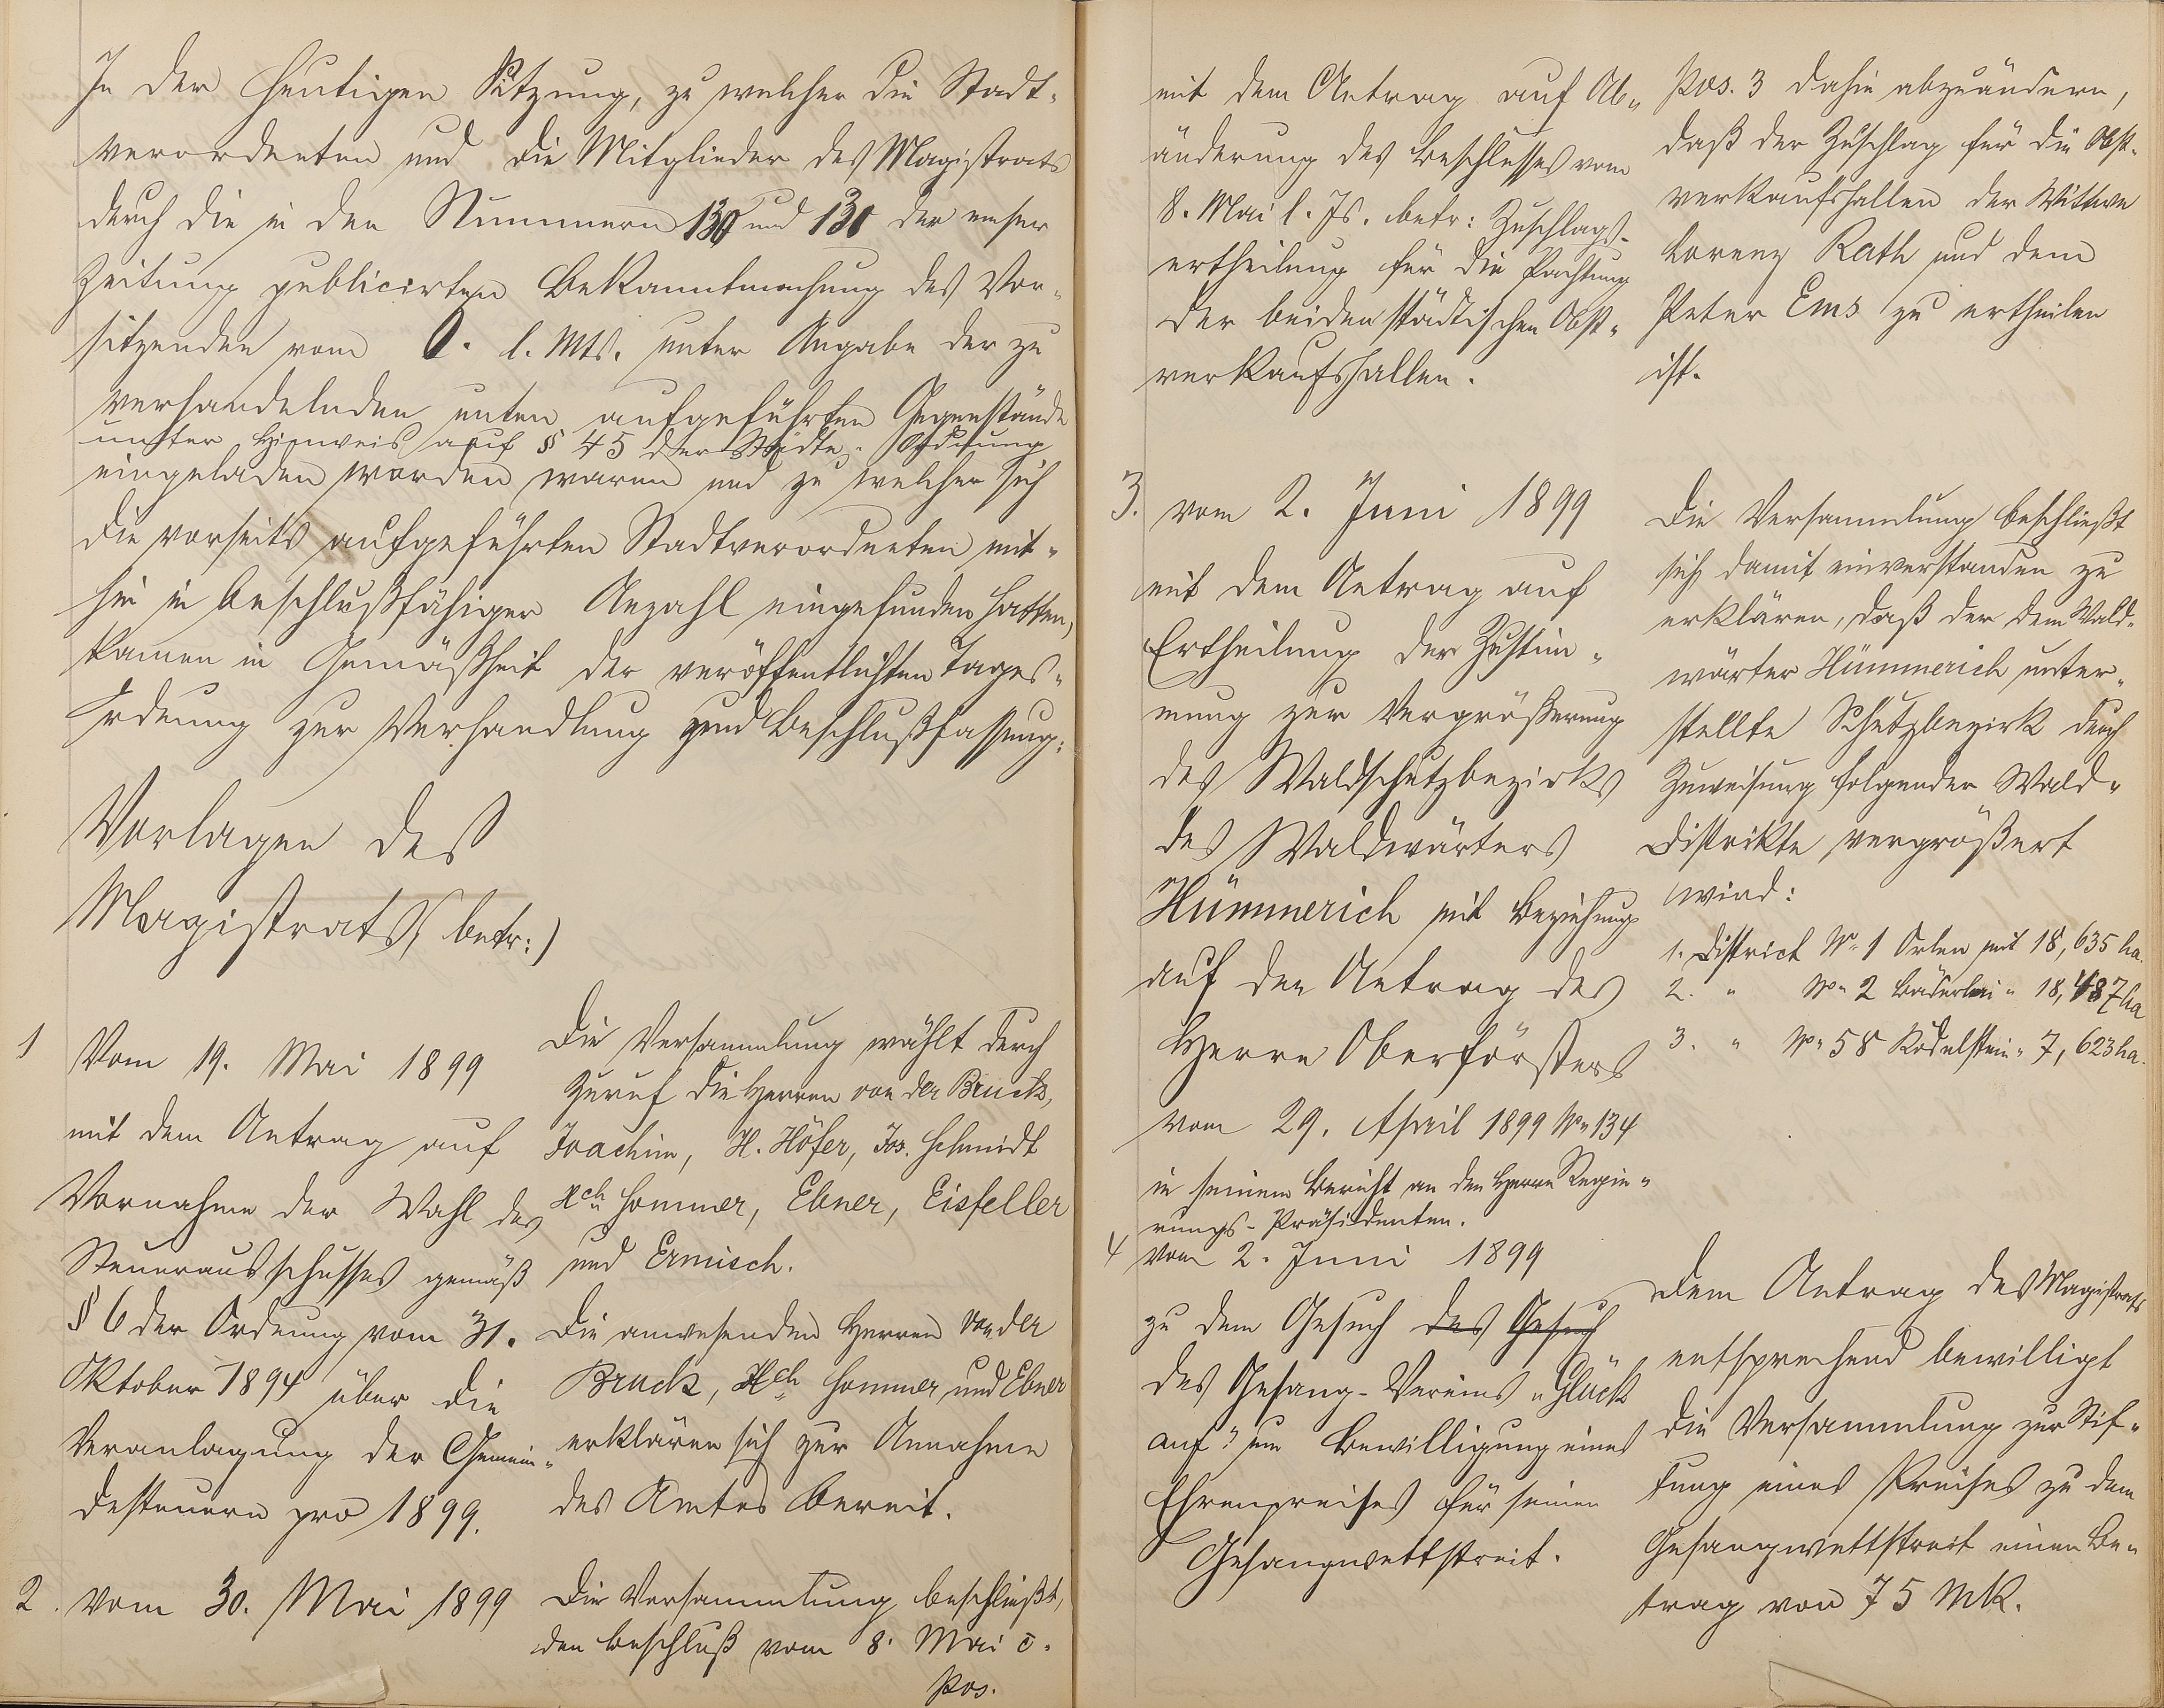 In der heutigen Sitzung, zu welcher die Stadt-
verordneten und die Mitglieder des Magistrats
durch die in den Nummern 130 und 131 der emser
Zeitung publicirten Bekanntmachung des Vor-
sitzenden vom l. Mts. unter Angabe der zu
verhandelnden unten aufgeführten Gegenstände
unter Hinweis auf § 45 der Städte-Ordnung
eingeladen worden waren und zu welcher sich
die vorseits aufgeführten Stadtverordneten mit-
hin in beschlußfähiger Anzahl eingefunden hatten,
kamen in Gemäßheit der veröffentlichten Tages-
Ordnung zur Verhandlung und Beschlußfassung:
Vorlagen des
Magistrats, betr:)
1
Vom 19. Mai 1899
mit dem Antrag auf
Vornahme der Wahl des
Steuerausschusses gemäß
§ 6 der Ordnung vom 31.
Oktober 1894 über die
Veranlagung der Gemein-
desteuern pro 1899.
Die Versammlung wählt durch
Zuruf die Herren von der Bruck,
Joachim, H. Höfer, Jos. Schmidt
Hch Sommer, Ebner, Eisfeller
und Ermisch.
Die anwesenden Herren von der
Bruck, Hch Sommer und Ebner
erklären sich zur Annahme
des Amtes bereit.
2. Vom 30. Mai 1899
Die Versammlung beschließt,
den Beschluß vom 8. Mai c.
Pos.
mit dem Antrag auf Ab-
änderung des Beschlusses vom
8. Mai l. Js. betr: Zuschlags-
ertheilung für die Pachtung
der beiden städtischen Obst-
verkaufshallen.
Pos. 3 dahin abzuändern,
daß der Zuschlag für die Obst-
verkaufshallen der Wittwe
Lorenz Rath und dem
Peter Ems zu ertheilen
ist.
3. vom 2. Juni 1899
mit dem Antrag auf
Ertheilung der Zustim-
mung zur Vergrößerung
des Waldschutzbezirks
des Waldwärters
Hümmerich mit Beziehung
auf den Antrag des
Herrn Oberförsters
vom 29. April 1899 No 134
in seinem Bericht an den Herrn Regie-
rungs-Präsidenten.
Die Versammlung beschließt
sich damit einverstanden zu
erklären, daß der dem Wald-
wärter Hümmerich unter-
stellte Schutzbezirk durch
Zuweisung folgender Wald-
distrikte vergrößert
wird:
1. District No 1 Orlen mit 18,635 ha.
2. " No 2 Bäderlei " 18,487 ha
3. " No 58 Rödelstein " 7,623 ha.
4 Vom 2. Juni 1899
zu dem Gesuch des Gesuch
des Gesang-Vereins "Glück
auf" um Bewilligung eines
Ehrenpreises für seinen
Gesangwettstreit.
Dem Antrag des Magistrats
entsprechend bewilligt
die Versammlung zur Stif-
tung eines Preises zu dem
Gesangwettstreit einen Be-
trag von 75 Mk.